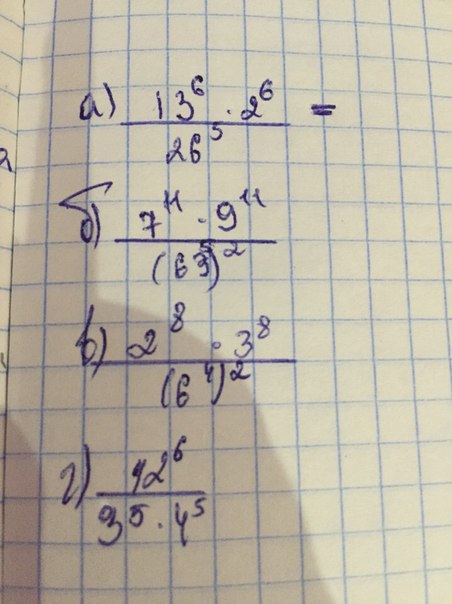 а) 13⁶ · 2⁶ / 26⁵ =
б) 7¹¹ · 9¹¹ / (63⁵)²
в) 2⁸ · 3⁸ / (6⁴)²
г) 12⁶ / 3⁵ · 4⁵